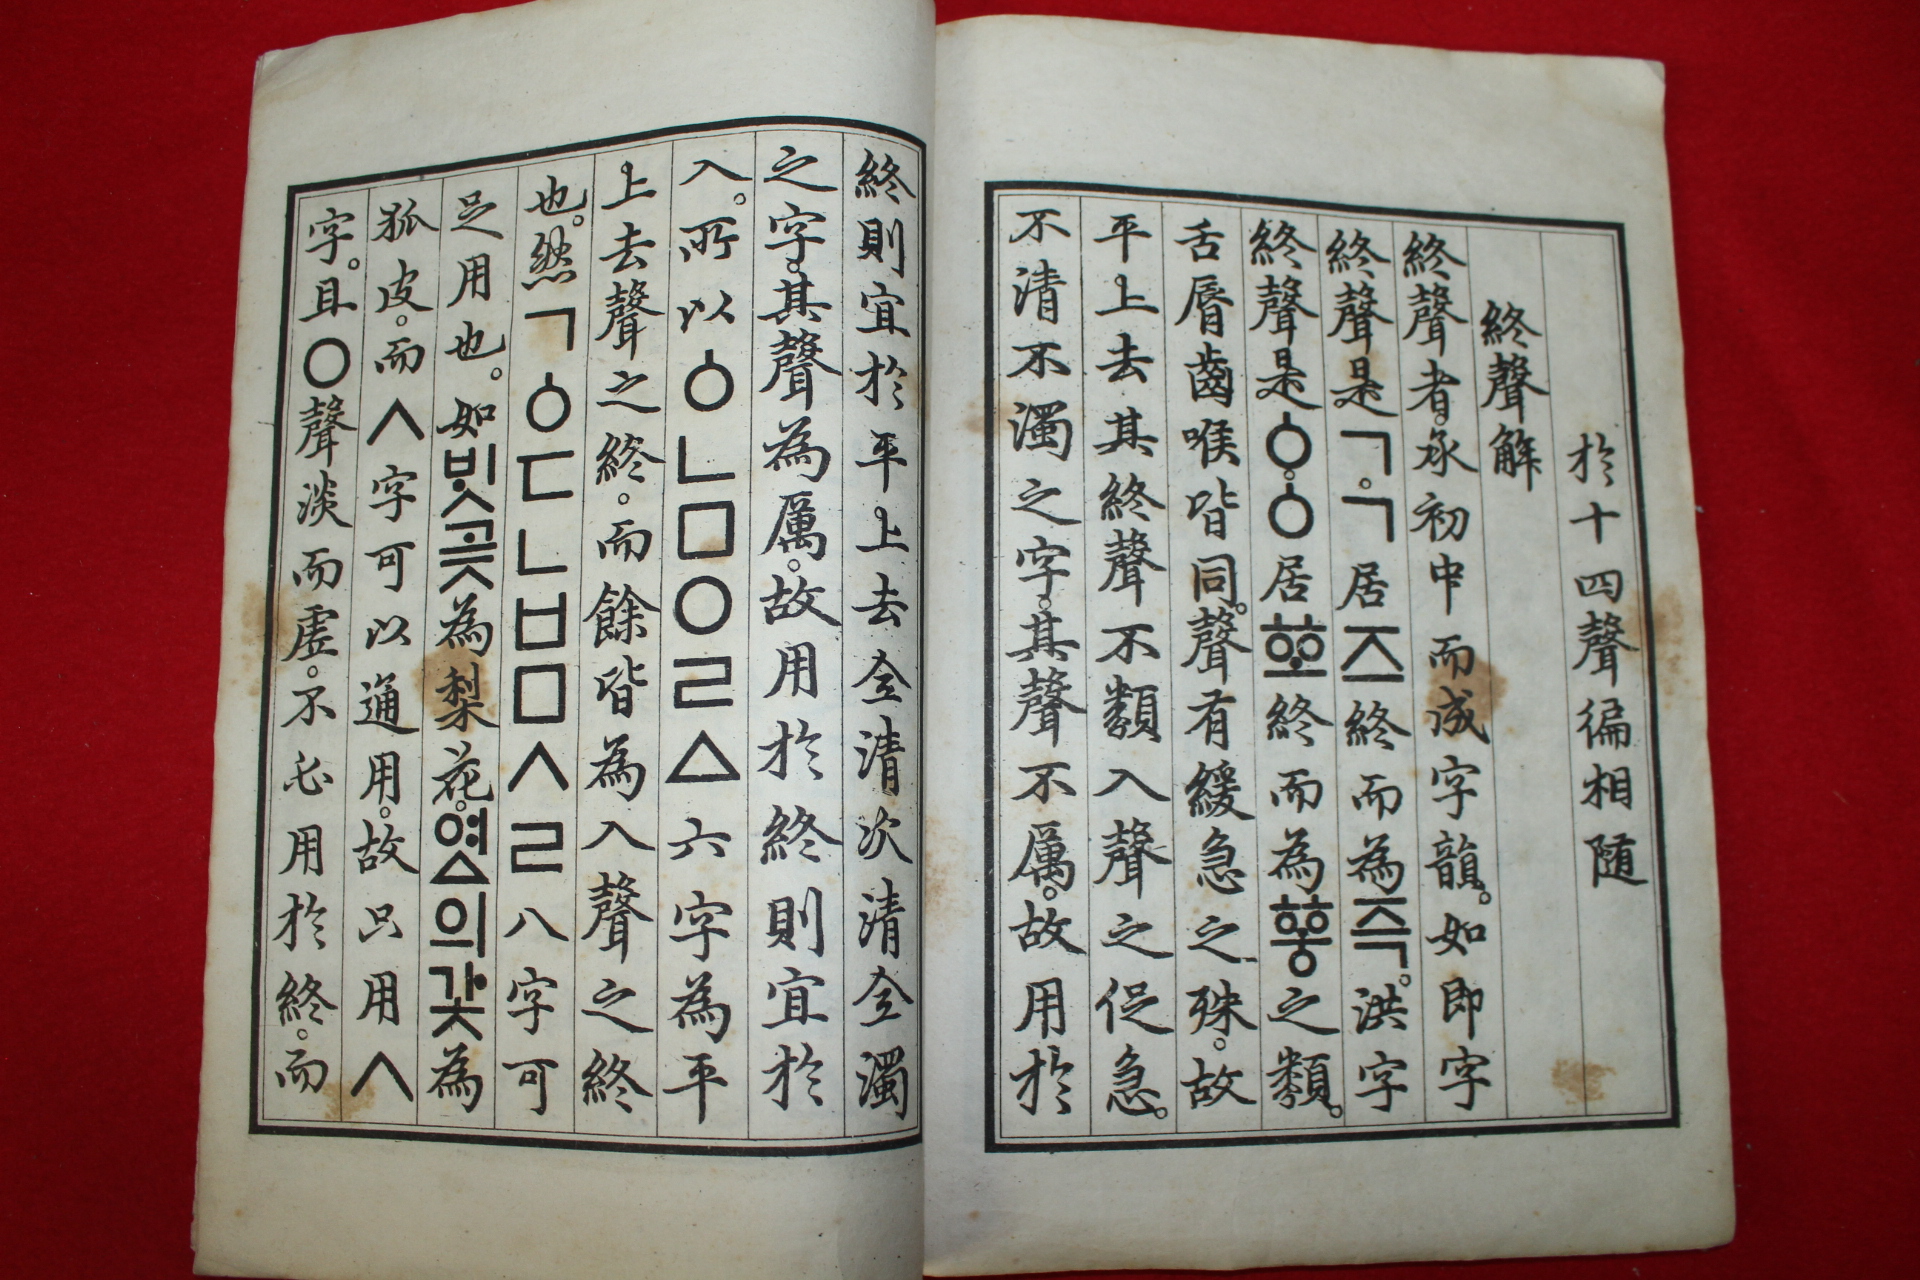 於十四聲徧相隨
終聲解
終聲者。承初中而成字韻。如即字
終聲是ㄱ。ㄱ居즈終而為즉。洪字
終聲是ㆁ。ㆁ居ᅘᅩ終而為ᅘᅩᆼ之類。
舌脣齒喉皆同。聲有緩急之殊。故
平上去其終聲不類入聲之促急。
不清不濁之字。其聲不厲。故用於
終則宜於平上去。全清次清全濁
之字。其聲為厲。故用於終則宜於
入。所以ㆁㄴㅁㅇㄹㅿ六字為平
上去聲之終。而餘皆為入聲之終
也。然ㄱㆁㄷㄴㅂㅁㅅㄹ八字可
足用也。如ᄇᆡᆺ곶為梨花。여ᇫ의갗為
狐皮。而ㅅ字可以通用。故只用ㅅ
字。且ㅇ聲淡而虛。不必用於終。而